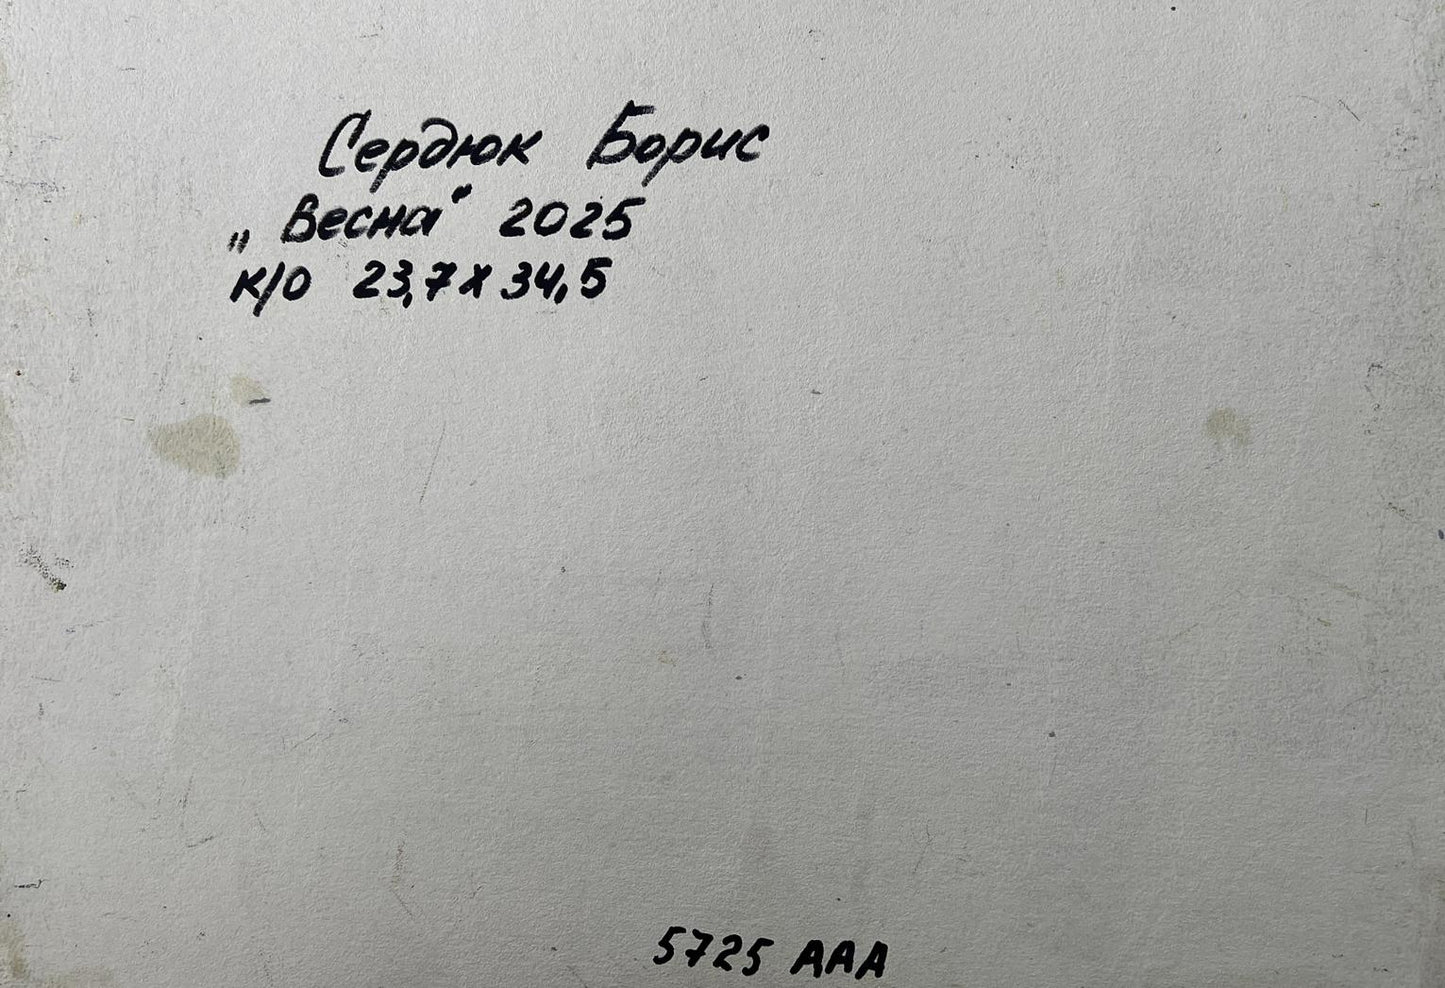 Сердюк Борис
„Весна" 2025
к/о 23,7х34,5
5725 ААА